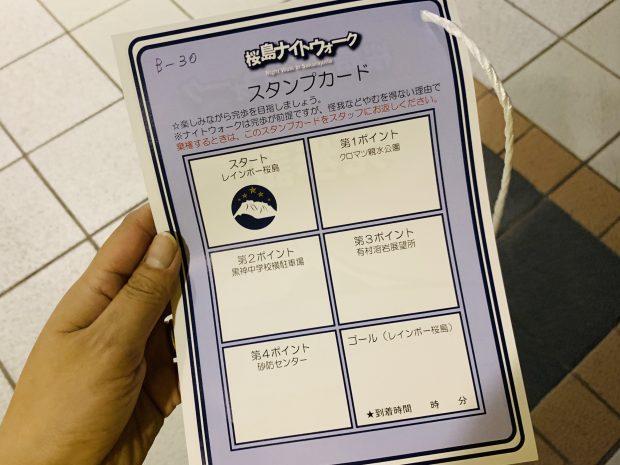 B-30
桜島ナイトウォーク
Night Walk in Sakurajima
スタンプカード
☆楽しみながら完歩を目指しましょう。
※ナイトウォークは完歩が前提ですが、怪我などやむを得ない理由で
棄権するときは、このスタンプカードをスタッフにお返しください。
スタート
レインボー桜島
第1ポイント
クロマツ親水公園
第2ポイント
黒神中学校横駐車場
第3ポイント
有村溶岩展望所
第4ポイント
砂防センター
ゴール(レインボー桜島)
★到着時間 時 分